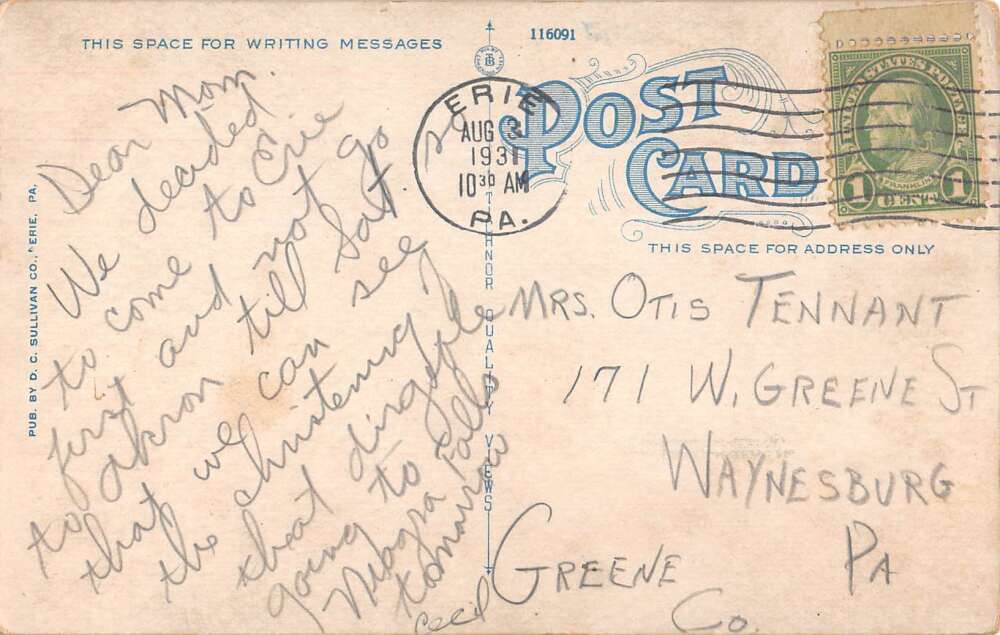 THIS SPACE FOR WRITING MESSAGES
116091
POST
CARD
THIS SPACE FOR ADDRESS ONLY
PUB. BY D. C. SULLIVAN CO., ERIE, PA.
THNOR QUALITY VIEWS
ERIE
AUG 3
1931
10 30 AM
PA.
UNITED STATES POSTAGE
FRANKLIN
1 CENT 1
Dear Mom.
We decided
to come to Erie
first and not go
to Akron till Sat. so
that we can see
the christening
that dirigible
going to
Niagra Falls
tomorrow
Cecil
MRS. OTIS TENNANT
171 W. GREENE ST
WAYNESBURG
PA
GREENE
Co.